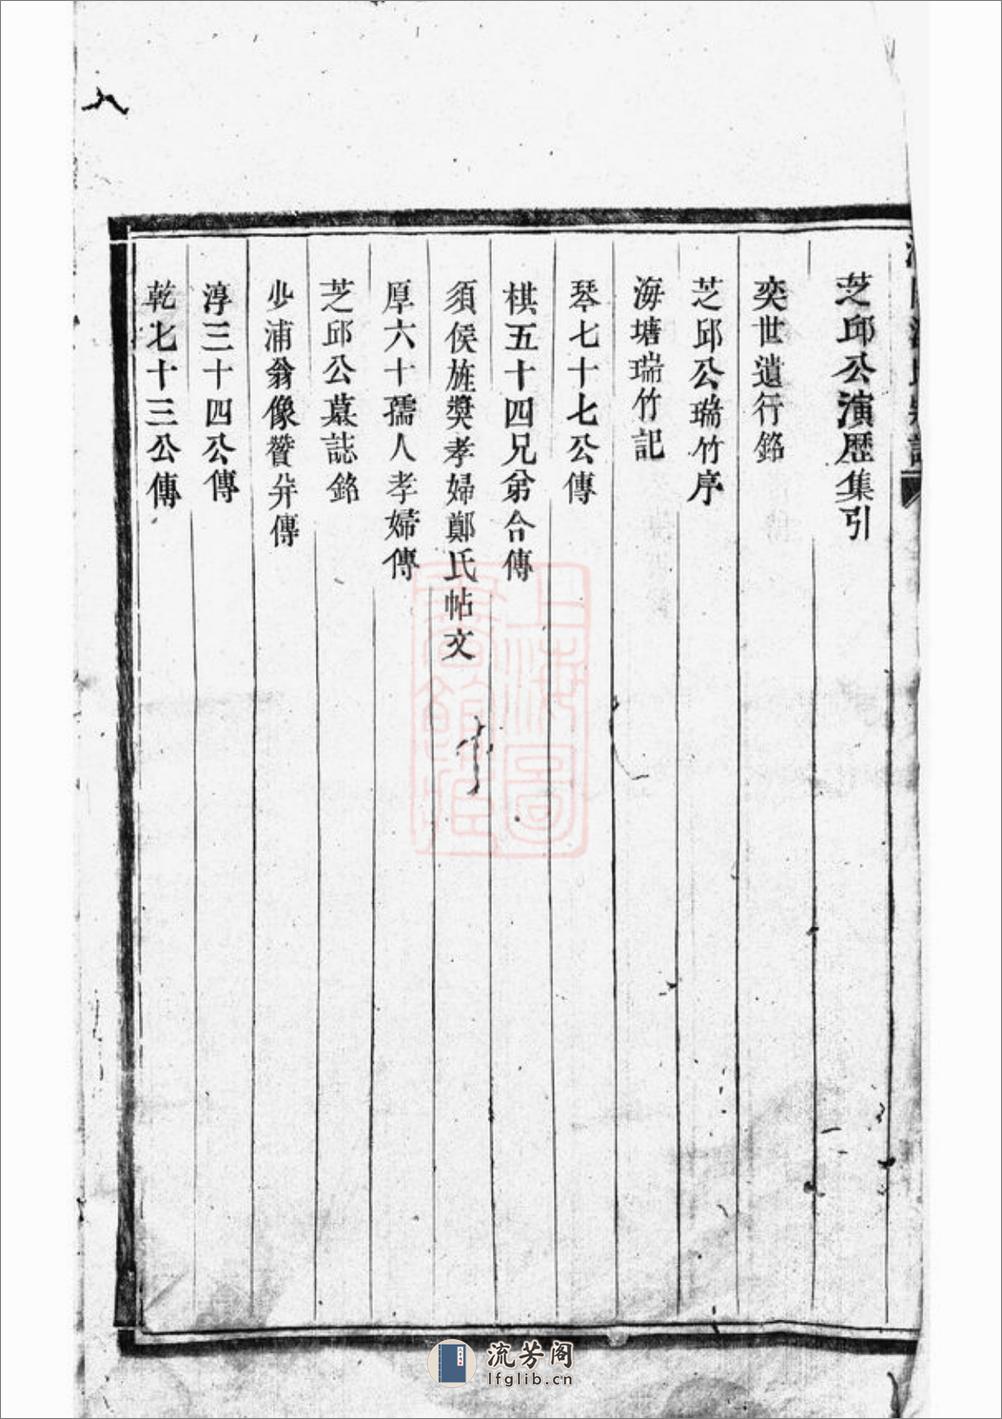 芝邱公演歷集引
奕世遺行銘
芝邱公瑞竹序
海塘瑞竹記
琴七十七公傳
棋五十四兄弟合傳
須侯旌獎孝婦鄭氏帖文
厚六十孺人孝婦傳
芝邱公墓誌銘
少浦翁像贊并傳
淳三十四公傳
乾七十三公傳
上海圖
書館藏
流芳阁
lfglib.cn